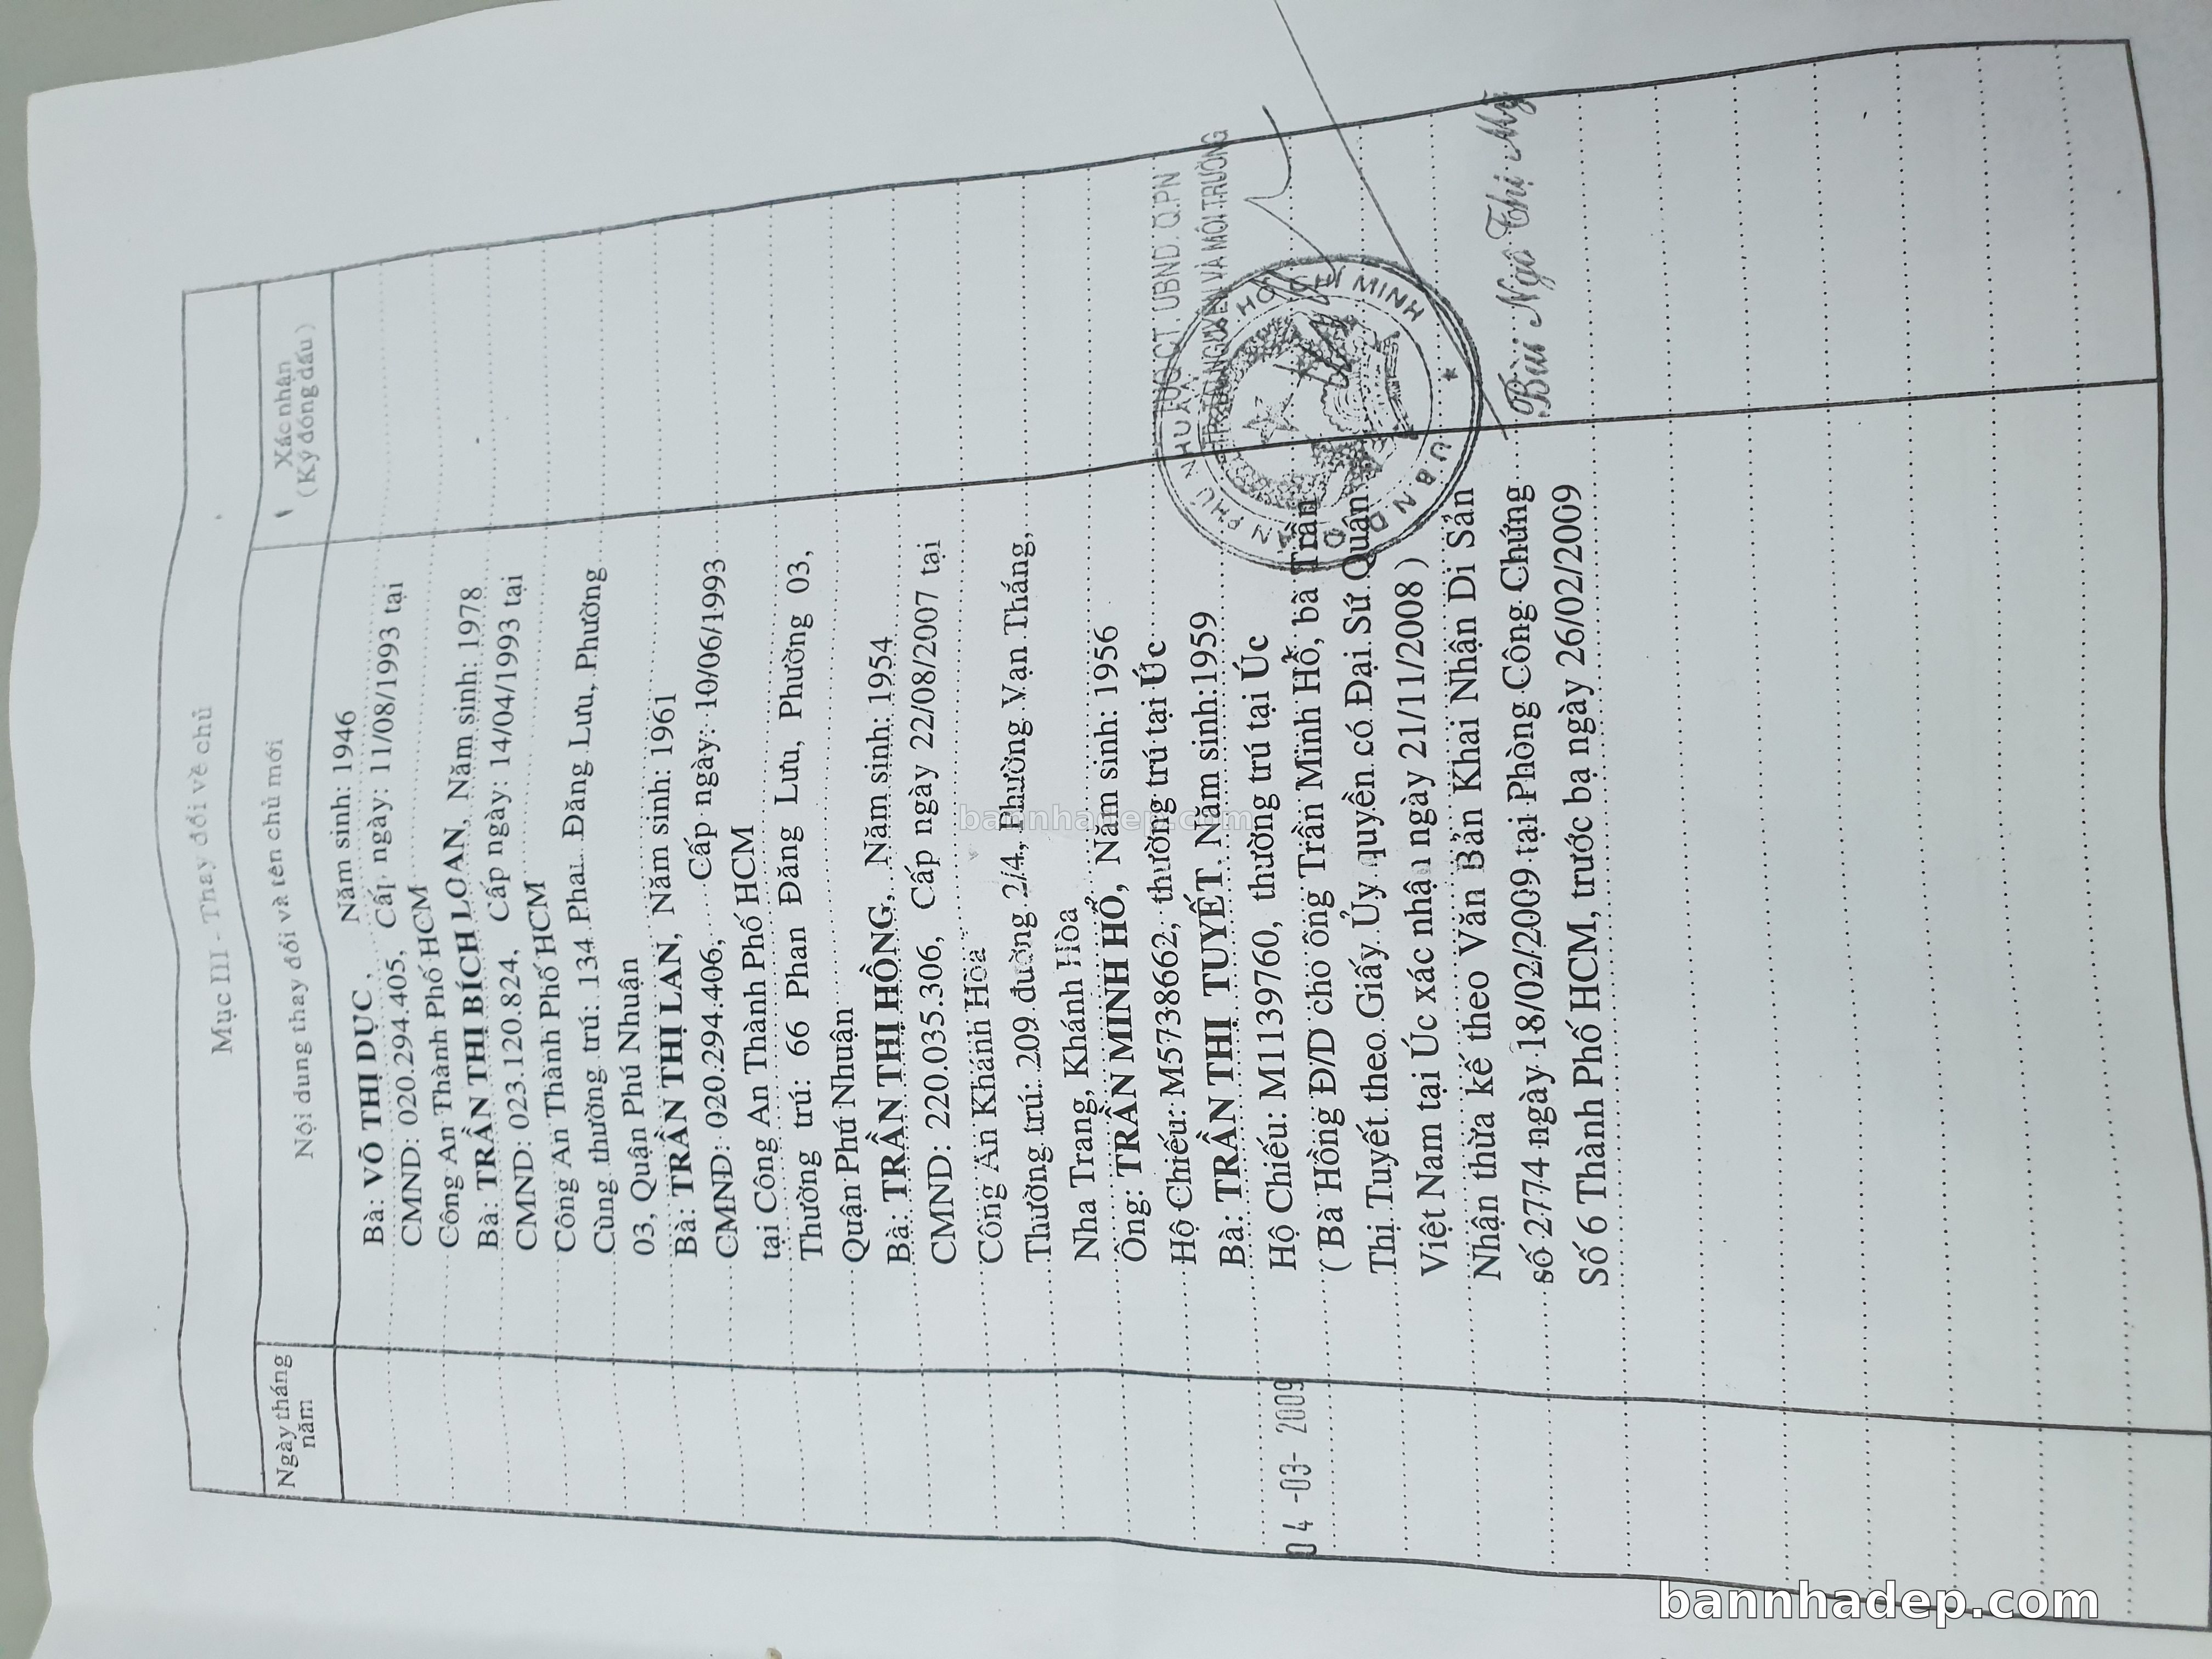 Mục III - Thay đổi về chủ
Ngày tháng
năm
Nội dung thay đổi và tên chủ mới
Xác nhận
(Ký đóng dấu)
Bà: VÕ THỊ DỤC, Năm sinh: 1946
CMND: 020.294.405, Cấp ngày: 11/08/1993 tại
Công An Thành Phố HCM
Bà: TRẦN THỊ BÍCH LOAN, Năm sinh: 1978
CMND: 023.120.824, Cấp ngày: 14/04/1993 tại
Công An Thành Phố HCM
Cùng thường trú: 134 Phan Đăng Lưu, Phường
03, Quận Phú Nhuận
Bà: TRẦN THỊ LAN, Năm sinh: 1961
CMND: 020.294.406, Cấp ngày: 10/06/1993
tại Công An Thành Phố HCM
Thường trú: 66 Phan Đăng Lưu, Phường 03,
Quận Phú Nhuận
Bà: TRẦN THỊ HỒNG, Năm sinh: 1954
CMND: 220.035.306, Cấp ngày 22/08/2007 tại
Công An Khánh Hòa
Thường trú: 209 đường 2/4, Phường Vạn Thắng,
Nha Trang, Khánh Hòa
Ông: TRẦN MINH HỔ, Năm sinh: 1956
Hộ Chiếu: M5738662, thường trú tại Úc
Bà: TRẦN THỊ TUYẾT. Năm sinh:1959
Hộ Chiếu: M1139760, thường trú tại Úc
( Bà Hồng Đ/D cho ông Trần Minh Hổ, bà Trần
Thị Tuyết theo Giấy Ủy quyền có Đại Sứ Quán
Việt Nam tại Úc xác nhận ngày 21/11/2008 )
Nhận thừa kế theo Văn Bản Khai Nhận Di Sản
số 2774 ngày 18/02/2009 tại Phòng Công Chứng
Số 6 Thành Phố HCM, trước bạ ngày 26/02/2009
04 -03- 2009
TUQ CT. UBND. Q.PN
TP. TÀI NGUYÊN VÀ MÔI TRƯỜNG
HỒ CHÍ MINH
UBND Q
ẬN PHÚ NHUẬN
Bùi Ngô Thị Mỹ
bannhadep.com
bannhadep.com